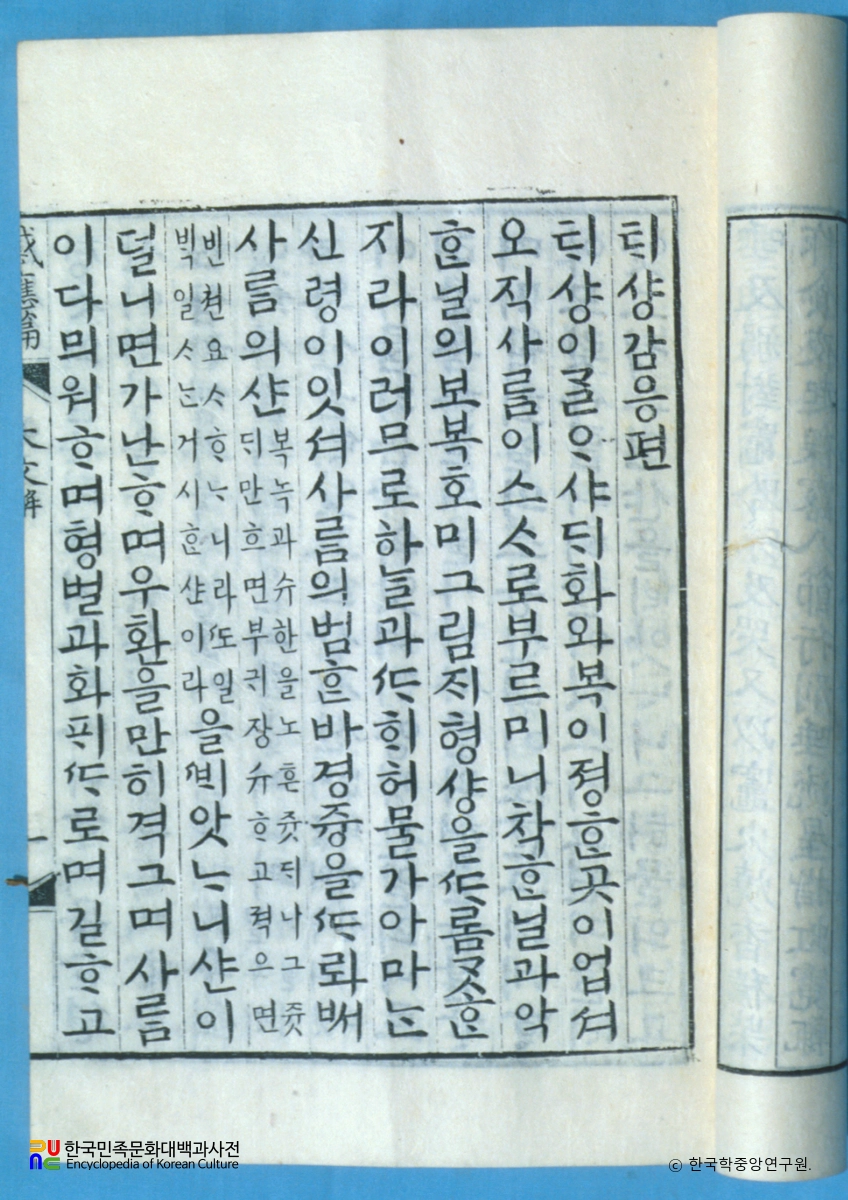 ᄐᆡ샹감응편
ᄐᆡ샹이ᄀᆞᆯᄋᆞ샤ᄃᆡ화와복이졍ᄒᆞᆫ곳이업셔
오직사ᄅᆞᆷ이스ᄉᆞ로부르미니착ᄒᆞᆫ닐과악
ᄒᆞᆫ닐의보복호미그림ᄌᆡ형샹을ᄯᆞ롬ᄀᆞᆺᄒᆞᆫ
지라이러므로하ᄂᆞᆯ과ᄯᆞ희허물가아마ᄂᆞᆫ
신령이잇셔사ᄅᆞᆷ의범ᄒᆞᆫ바경즁을ᄯᆞ롸ᄲᅢ
사ᄅᆞᆷ의샨
복녹과슈한을노흔쥿ᄃᆡ나그쥿
ᄃᆡ만흐면부귀쟝슈ᄒᆞ고젹으면
빈쳔요ᄉᆞᄒᆞᄂᆞ니라ᄯᅩ일
ᄇᆡᆨ일ᄉᆞᄂᆞᆫ거시ᄒᆞᆫ샨이라
을ᄲᆡ앗ᄂᆞ니샨이
덜니면가난ᄒᆞ며우환을만히격그며사ᄅᆞᆷ
이다믜워ᄒᆞ며형벌과화ᄑᆡᄯᆞ로며길ᄒᆞ고
感應篇
大文解
一
한국민족문화대백과사전
Encyclopedia of Korean Culture
© 한국학중앙연구원.